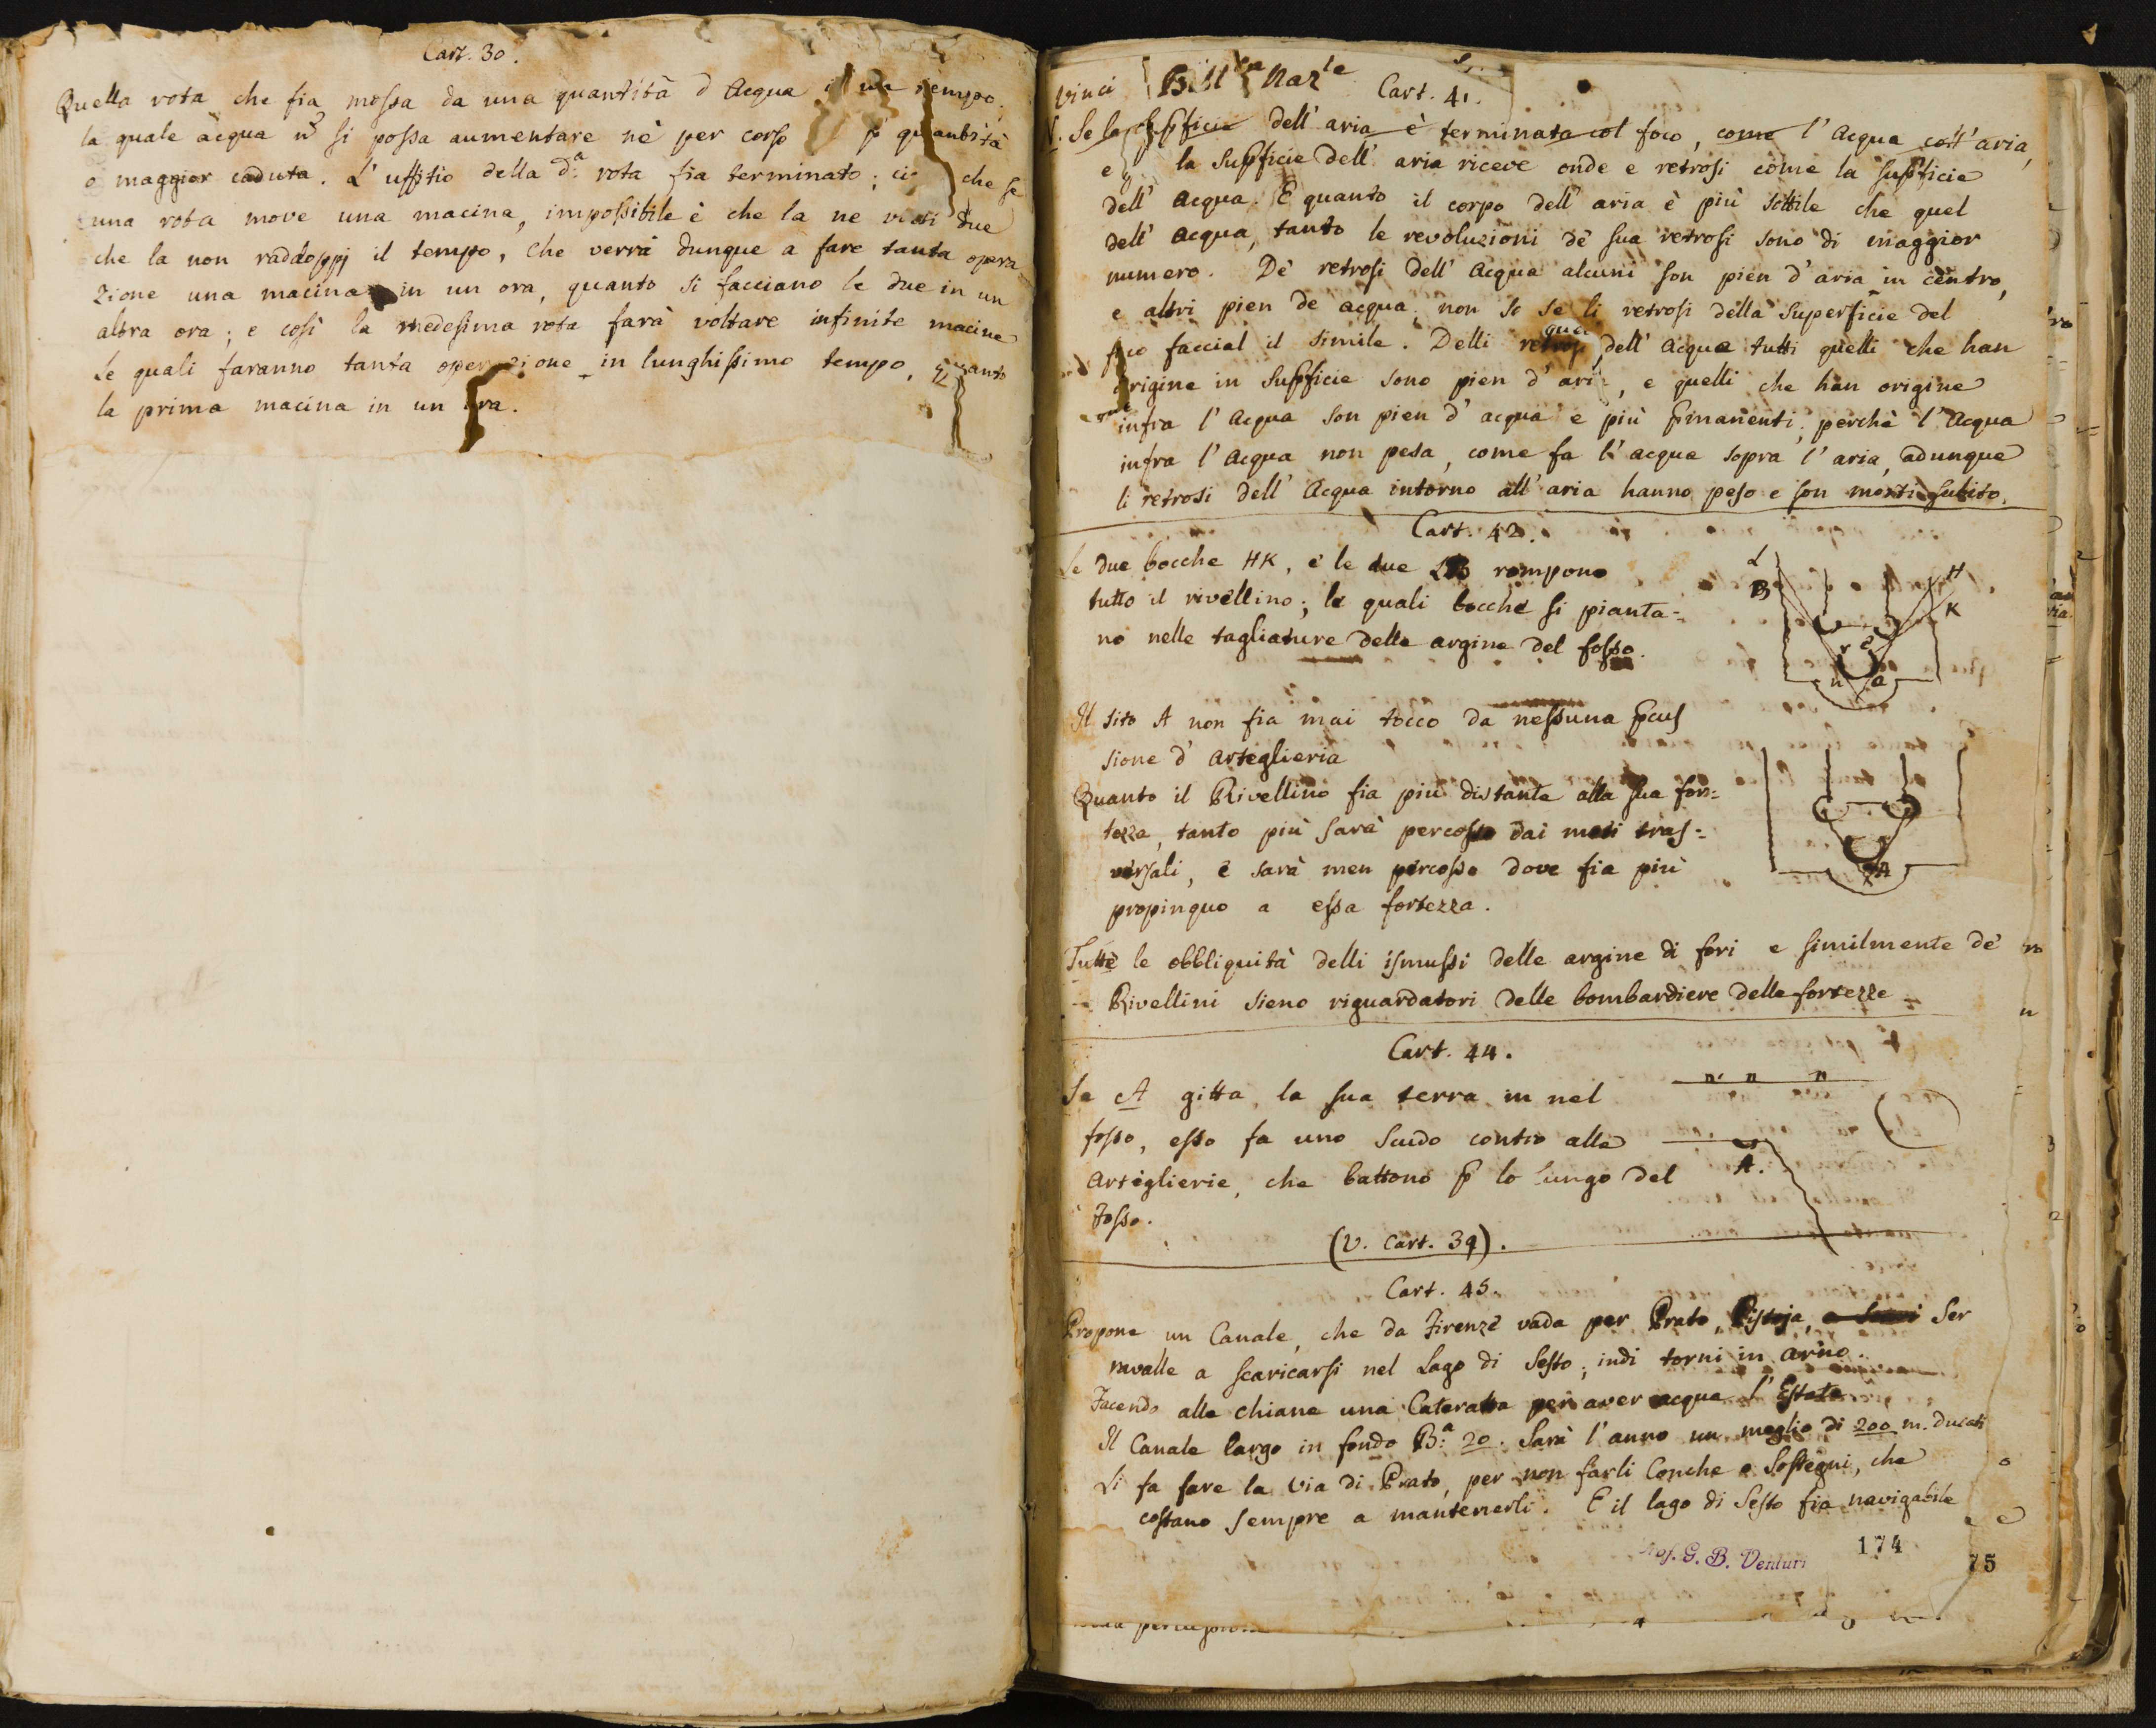 Cart. 30.
Quella rota che fia mossa da una quantità d'Acqua tempo,
la quale acqua nō si possa aumentare nè per corso quantità
o maggior caduta. L'uffitio della d.a rota fia terminato; cio che se
una rota move una macina, impossibile è che la ne volti due
che la non raddoppj il tempo, che verrà dunque a fare tanta opera
zione una macina in un ora, quanto si facciano le due in un
altra ora; e così la medesima rota farà voltare infinite macine
le quali faranno tanta operazione in lunghissimo tempo, quanto
la prima macina in un ora.
Vinci Bibl.ca Naz.le Cart. 41.
N. Se la supficie dell'aria è terminata col foco, come l'Acqua coll'aria,
e la Supficie dell'aria riceve onde e retrosi come la supficie
dell'Acqua. E quanto il corpo dell'aria è più sottile che quel
dell'Acqua, tanto le revoluzioni dè sua retrosi sono di maggior
numero. Dè retrosi dell'Acqua alcuni son pien d'aria in cèntro,
e altri pien de acqua; non so se li retrosi della superficie del
foco faccial il simile. Delli retrosi dell'Acqua tutti quelli che han
origine in Supficie sono pien d'aria, e quelli che han origine
infra l'Acqua son pien d'acqua e più pmanenti; perchè l'Acqua
infra l'Acqua non pesa, come fa l'acqua sopra l'aria, adunque
li retrosi dell'Acqua intorno all'aria hanno peso e son morti subito.
Cart. 42.
Le due bocche HK, e le due LB rompono
tutto il rivellino; le quali bocche si pianta=
no nelle tagliature delle argine del fosso.
L
B
H
K
r e
n a
Il sito A non fia mai tocco da nessuna pcus
sione d'Arteglieria
Quanto il Rivellino fia più distante alla sua for=
tezza, tanto più sarà percosso dai moti tras=
versali, e sarà men percosso dove fia più
propinquo a essa fortezza.
A
Tutte le obbliquità delli ismussi delle argine di fori e similmente de'
Rivellini sieno riguardatori delle bombardiere delle fortezze
Cart. 44.
n n n
Se A gitta la sua terra in nel
fosso, esso fa uno scudo contro alle
Arteglierie, che battono p lo lungo del
fosso.
A.
(V. Cart. 39).
Cart. 45.
Propone un Canale, che da Firenze vada per Prato, Pistoja, Ser
ravalle a scaricarsi nel Lago di Sesto; indi torni in Arno.
Facendo alle chiane una Cateratta per aver acqua l'Estate
Il Canale largo in fondo B.a 20. Sarà l'anno un meglio di 200 m. Ducati
Li fa fare la via di Prato, per non farli Conche e Sostegni, che
costano sempre a mantenerli. E il lago di Sesto fia navigabile
Prof. G. B. Venturi
174
75